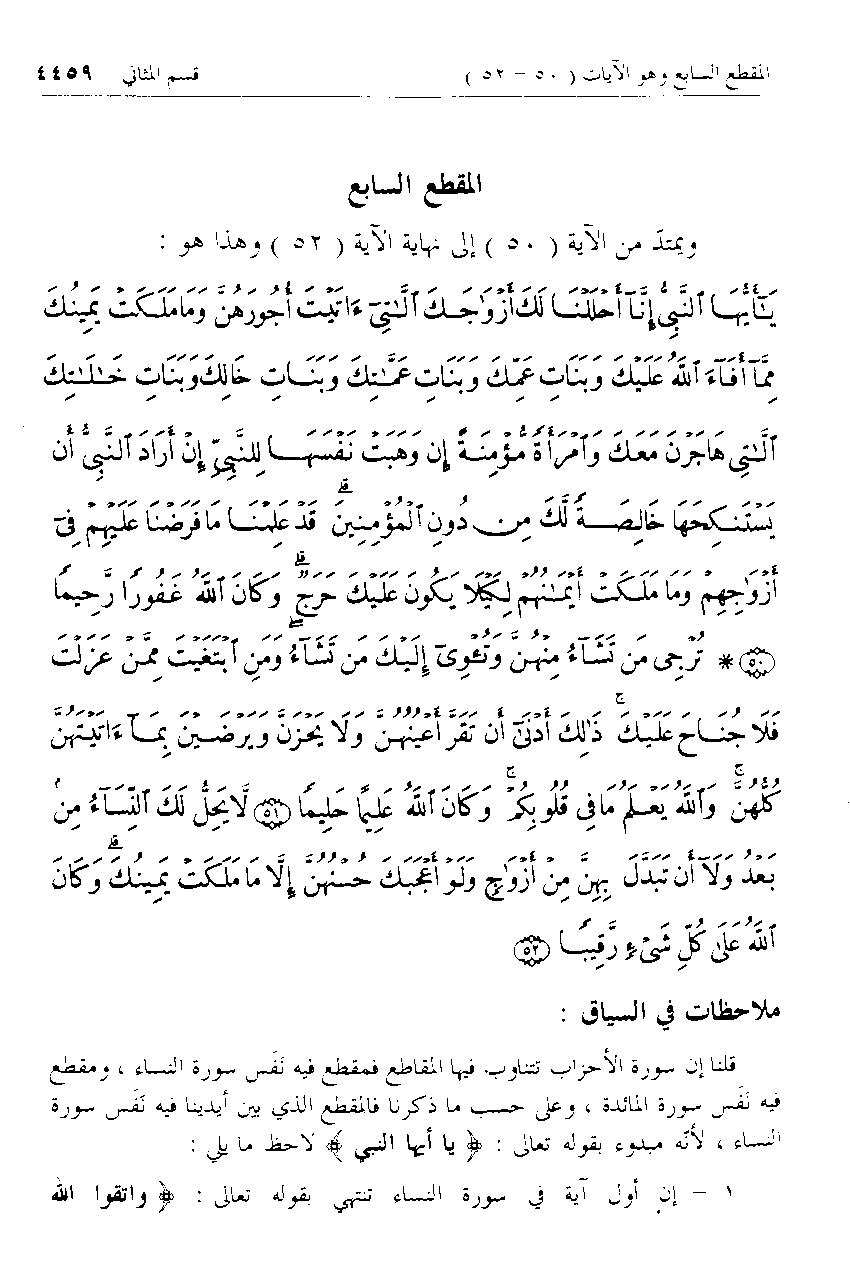 المقطع السابع وهو الآيات ( ٥٠ – ٥٢ ) قسم المثاني ٤٤٥٩
المقطع السابع
ويمتدّ من الآية ( ٥٠ ) إلى نهاية الآية ( ٥٢ ) وهذا هو :
يَـٰٓأَيُّهَا ٱلنَّبِىُّ إِنَّآ أَحْلَلْنَا لَكَ أَزْوَٰجَكَ ٱلَّـٰتِىٓ ءَاتَيْتَ أُجُورَهُنَّ وَمَا مَلَكَتْ يَمِينُكَ
مِمَّآ أَفَآءَ ٱللَّهُ عَلَيْكَ وَبَنَاتِ عَمِّكَ وَبَنَاتِ عَمَّـٰتِكَ وَبَنَاتِ خَالِكَ وَبَنَاتِ خَـٰلَـٰتِكَ
ٱلَّـٰتِى هَاجَرْنَ مَعَكَ وَٱمْرَأَةً مُّؤْمِنَةً إِن وَهَبَتْ نَفْسَهَا لِلنَّبِىِّ إِنْ أَرَادَ ٱلنَّبِىُّ أَن
يَسْتَنكِحَهَا خَالِصَةً لَّكَ مِن دُونِ ٱلْمُؤْمِنِينَ ۗ قَدْ عَلِمْنَا مَا فَرَضْنَا عَلَيْهِمْ فِىٓ
أَزْوَٰجِهِمْ وَمَا مَلَكَتْ أَيْمَـٰنُهُمْ لِكَيْلَا يَكُونَ عَلَيْكَ حَرَجٌ ۗ وَكَانَ ٱللَّهُ غَفُورًا رَّحِيمًا
٥٠ * تُرْجِى مَن تَشَآءُ مِنْهُنَّ وَتُـْٔوِىٓ إِلَيْكَ مَن تَشَآءُ وَمَنِ ٱبْتَغَيْتَ مِمَّنْ عَزَلْتَ
فَلَا جُنَاحَ عَلَيْكَ ۚ ذَٰلِكَ أَدْنَىٰٓ أَن تَقَرَّ أَعْيُنُهُنَّ وَلَا يَحْزَنَّ وَيَرْضَيْنَ بِمَآ ءَاتَيْتَهُنَّ
كُلُّهُنَّ ۚ وَٱللَّهُ يَعْلَمُ مَا فِى قُلُوبِكُمْ ۚ وَكَانَ ٱللَّهُ عَلِيمًا حَلِيمًا ٥١ لَّا يَحِلُّ لَكَ ٱلنِّسَآءُ مِنۢ
بَعْدُ وَلَآ أَن تَبَدَّلَ بِهِنَّ مِنْ أَزْوَٰجٍ وَلَوْ أَعْجَبَكَ حُسْنُهُنَّ إِلَّا مَا مَلَكَتْ يَمِينُكَ ۗ وَكَانَ
ٱللَّهُ عَلَىٰ كُلِّ شَىْءٍ رَّقِيبًا ٥٢
ملاحظات في السياق :
قلنا إن سورة الأحزاب تتناوب فيها المقاطع فمقطع فيه نَفَس سورة النساء ، ومقطع
فيه نَفَس سورة المائدة ، وعلى حسب ما ذكرنا فالمقطع الذي بين أيدينا فيه نَفَس سورة
النساء ، لأنّه مبدوء بقوله تعالى : ﴿ يا أيها النبي ﴾ لاحظ ما يلي :
١ – إن أول آية في سورة النساء تنتهي بقوله تعالى : ﴿ واتقوا الله